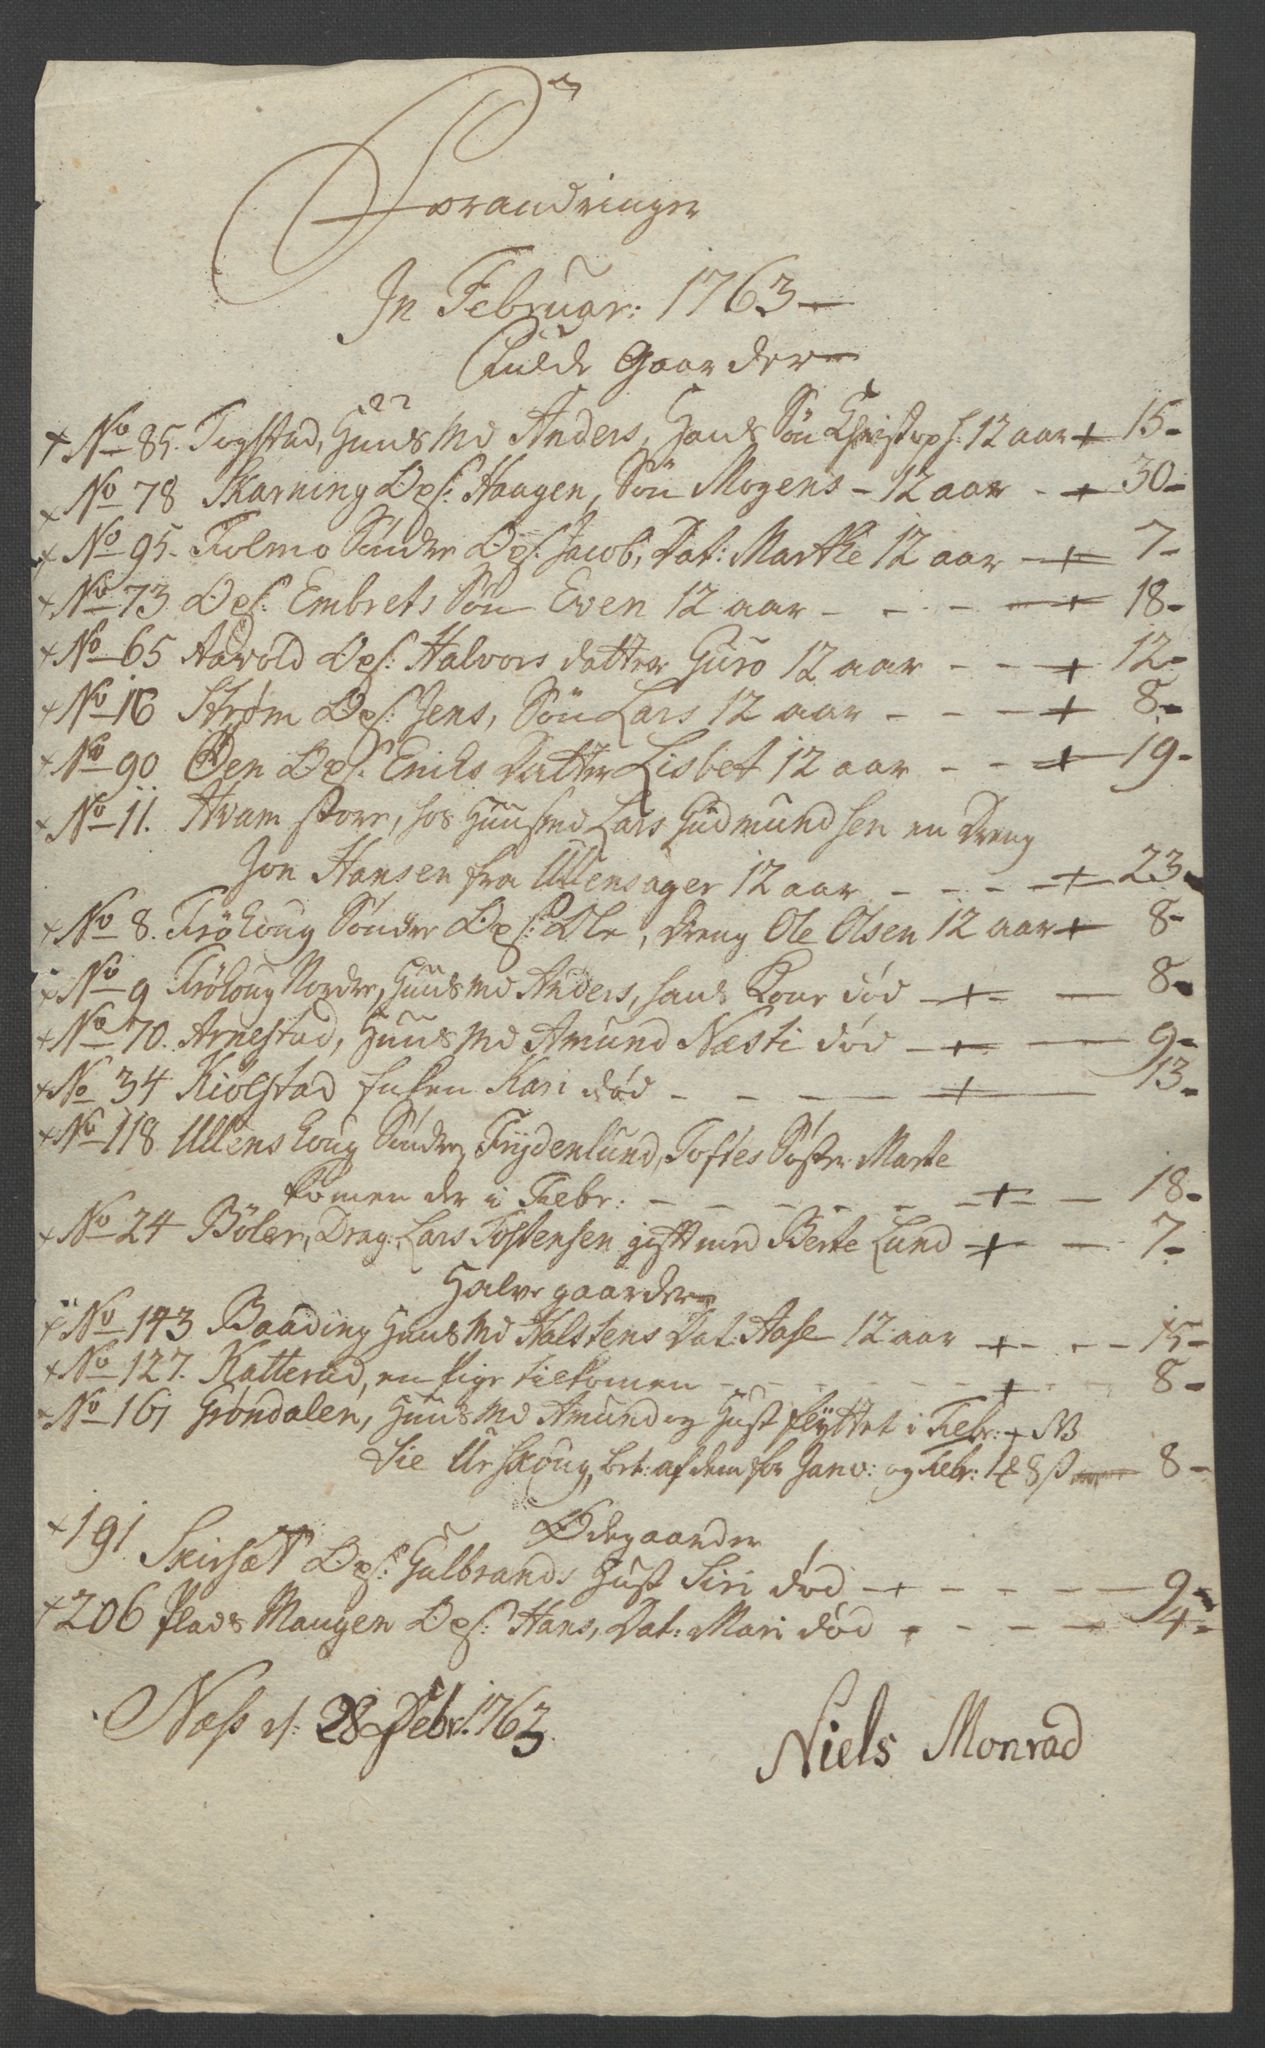 Forandringer
In Februar: 1763
Fulde Gaarder
+ No 85. Togstad, Huusmd Anders, Hans Søn Christoph: 12 aar + 15-
+ No 78 Skarning Ops: Haagen, Søn Mogens - 12 aar - + 30-
+ No 95. Folmo Søndre Ops: Jacob, Dat: Marthe 12 aar - + 7-
+ No 73 Ops: Embrets Søn Even 12 aar - - - + 18-
+ No 65 Aarold Ops: Halvors datter Guro 12 aar - - + 12-
+ No 16 Strøm Ops: Jens, Søn Lars 12 aar - - - + 8-
+ No 90 Een Ops: Erichs Datter Lisbet 12 aar - - + 19-
+ No 11. Hvam store, hos Huusmd Lars Gudmundsen en Dreng
Jon Hansen fra Ullensager 12 aar - - - + 23-
+ No 8. Frøhoug Søndre Ops: Ole, Dreng Ole Olsen 12 aar + 8-
+ No 9 Frøhoug Nordre, Huusmd Anders, hans Kone død - + - 8-
+ No 70. Arnestad, Huusmd Amund Næsti død - + - 9-
+ No 34 Kiolstad Enken Kari død - - - + 13-
+ No 118 Ullenshoug Søndre, Frydenlund, Toftes Søster Marte
komen der i Febr: - - - - - + - 18-
+ No 24 Bøler, Drag: Lars Tostensen gift med Berte Lund + - 7-
Halve gaarder
+ No 143 Baading Huusmd Halstens Dat: Aase 12 aar + - - 15-
+ No 127. Katterud, en Pige tilkomen - - - - + - 8-
+ No 161 Grøndalen, Huusmd Amund og Hust flyttet i Febr: + NB
til Urskoug, bet: af dem for Janv: og Febr: 1 8 s 8-
Ødegaarder
+ 191 Skirsæt Ops: Gulbrands Hust Siri død - + - - - 9-
+ 206 Plads Maugen Ops: Hans, Dat: Mari død + - - - 4-
Næss d: 28 Febr. 1763.
Niels Monrad